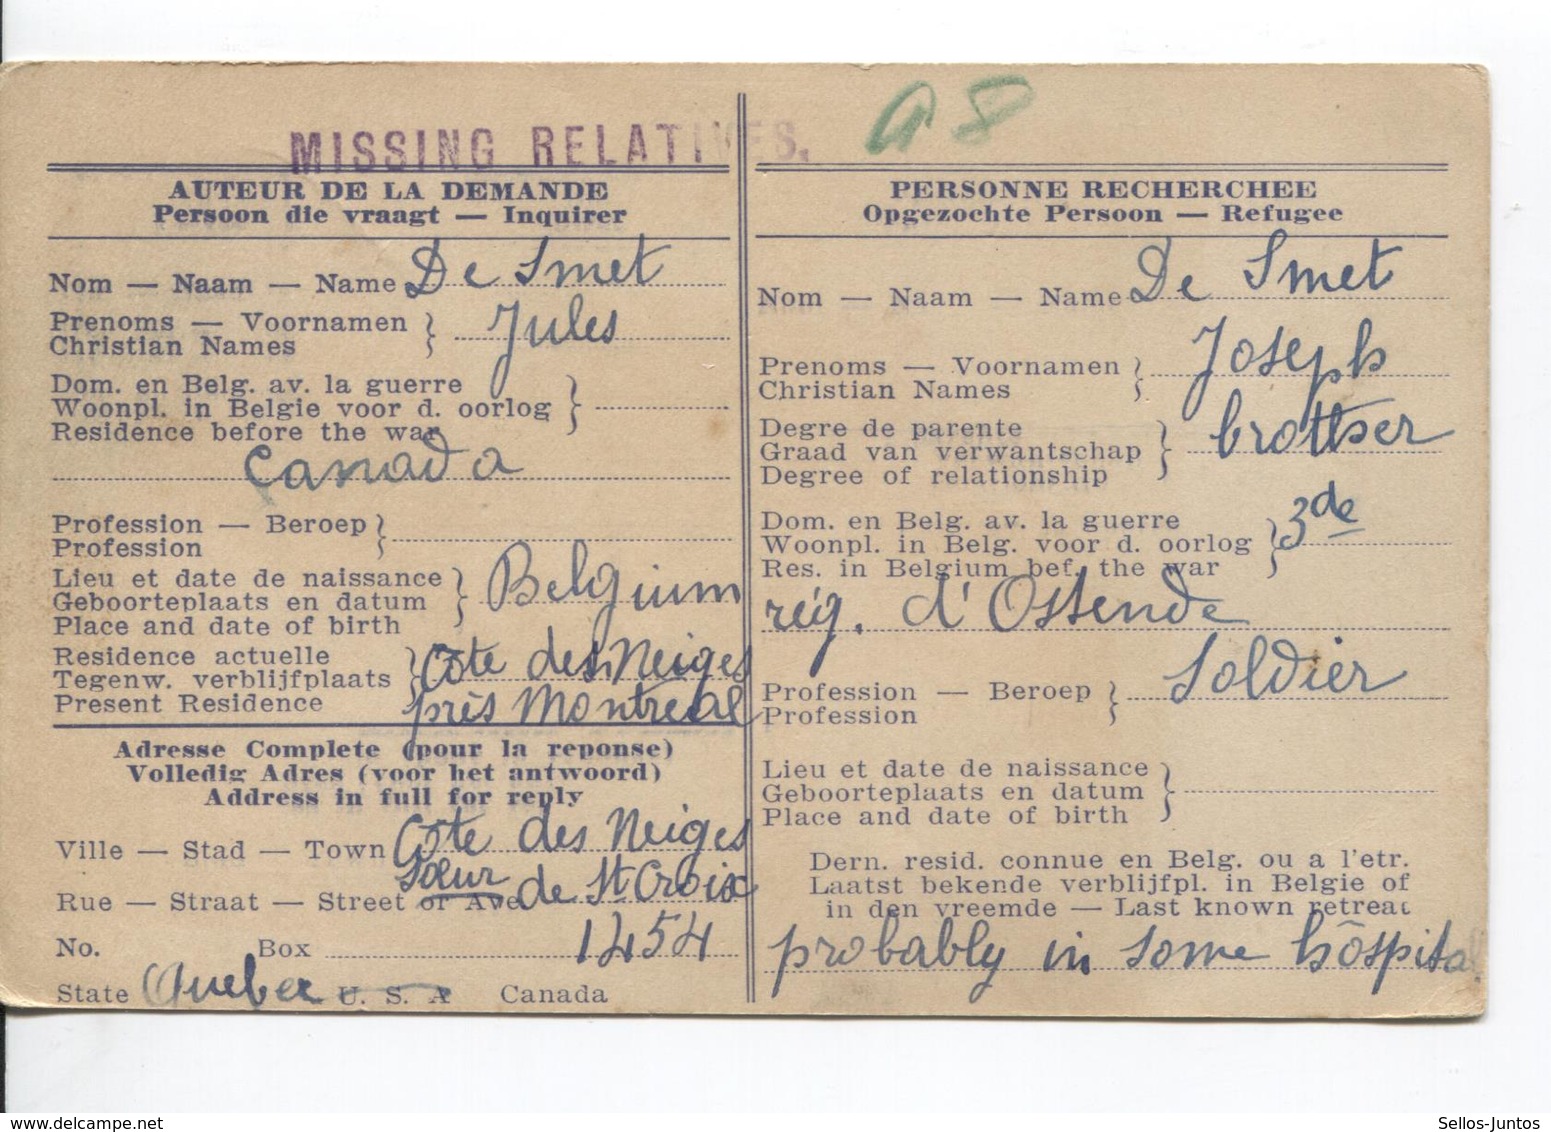 MISSING RELATIVES.
AUTEUR DE LA DEMANDE
Persoon die vraagt — Inquirer
Nom — Naam — Name De Smet
Prenoms — Voornamen } Jules
Christian Names
Dom. en Belg. av. la guerre
Woonpl. in Belgie voor d. oorlog }
Residence before the war
Canada
Profession — Beroep }
Profession
Lieu et date de naissance
Geboorteplaats en datum } Belgium
Place and date of birth
Residence actuelle
Tegenw. verblijfplaats } Côte des Neiges
Present Residence près Montreal
Adresse Complete (pour la reponse)
Volledig Adres (voor het antwoord)
Address in full for reply
Ville — Stad — Town Côte des Neiges
Soeur
Rue — Straat — Street or Ave de St Croix
No. Box 1454
State Quebec U. S. A Canada
PERSONNE RECHERCHEE
Opgezochte Persoon — Refugee
Nom — Naam — Name De Smet
Prenoms — Voornamen } Joseph
Christian Names
Degre de parente
Graad van verwantschap } brother
Degree of relationship
Dom. en Belg. av. la guerre
Woonpl. in Belg. voor d. oorlog } 3de
Res. in Belgium bef. the war
rég. d'Ostende
Soldier
Profession — Beroep }
Profession
Lieu et date de naissance
Geboorteplaats en datum }
Place and date of birth
Dern. resid. connue en Belg. ou a l'etr.
Laatst bekende verblijfpl. in Belgie of
in den vreemde — Last known retreat
probably in some hôspital
Sellos-Juntos